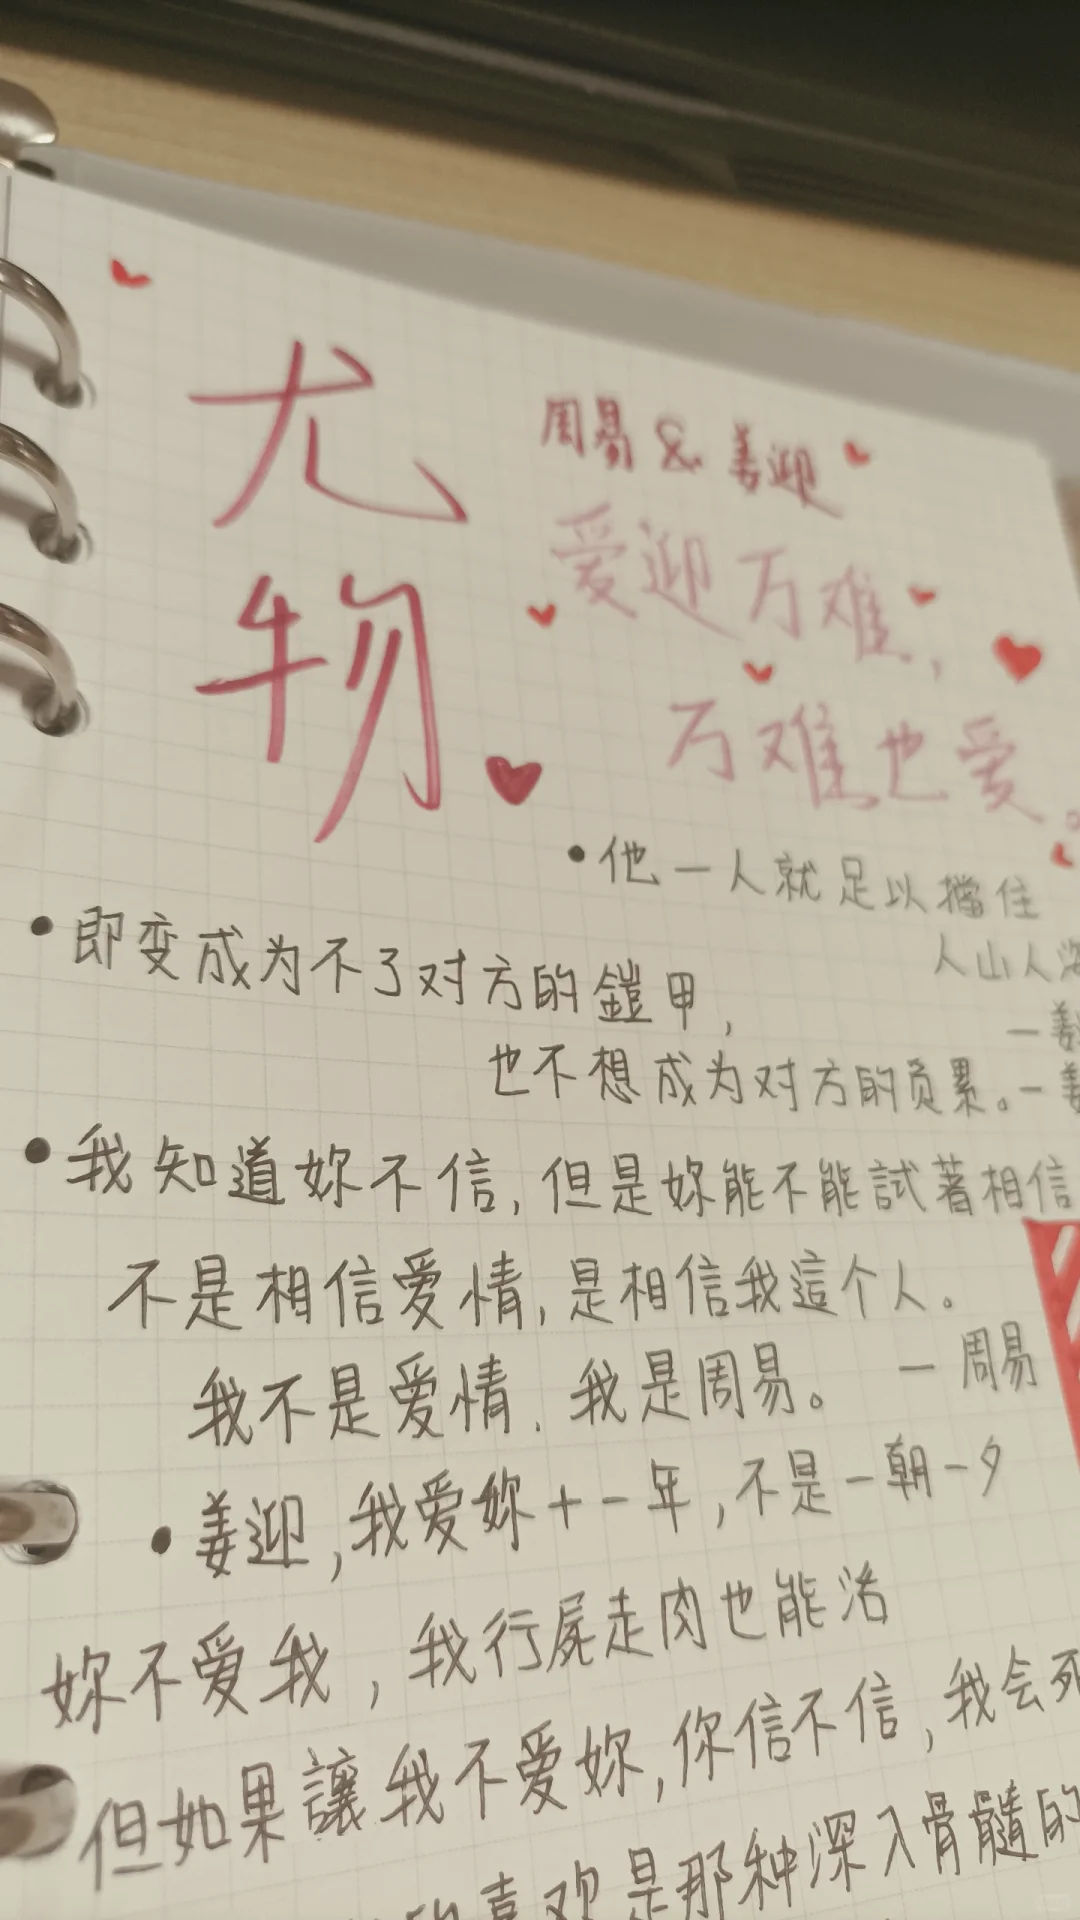 尤物
周易 & 姜迎
爱迎万难，
万难也爱。
• 他一人就足以擋住
人山人
• 即变成为不了对方的鎧甲，
也不想成为对方的负累。一姜
• 我知道妳不信，但是妳能不能試著相信
不是相信爱情，是相信我這个人。
我不是爱情．我是周易。 一周易
• 姜迎，我爱妳十一年，不是一朝一夕
妳不爱我，我行屍走肉也能活
但如果讓我不爱妳，你信不信，我会死
喜欢是那种深入骨髓的